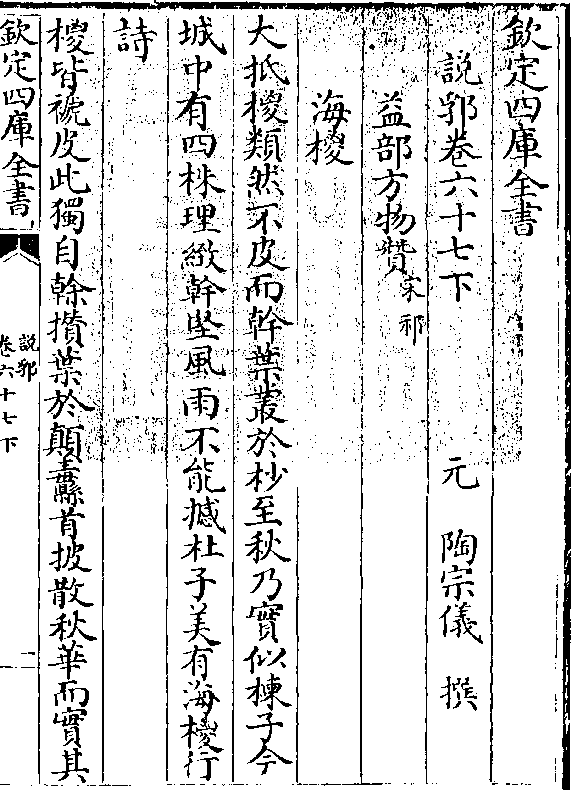 欽定四庫全書
說郛卷六十七下
元 陶宗儀 撰
益部方物讚宋祁
海椶
大抵椶類然不皮而幹葉叢於杪至秋乃實似楝子今
城中有四株理緻幹堅風雨不能撼杜子美有海椶行
詩
椶皆褫皮此獨自榦攢葉於顛纛首披散秋華而實其
欽定四庫全書
說郛
卷六十七下
一